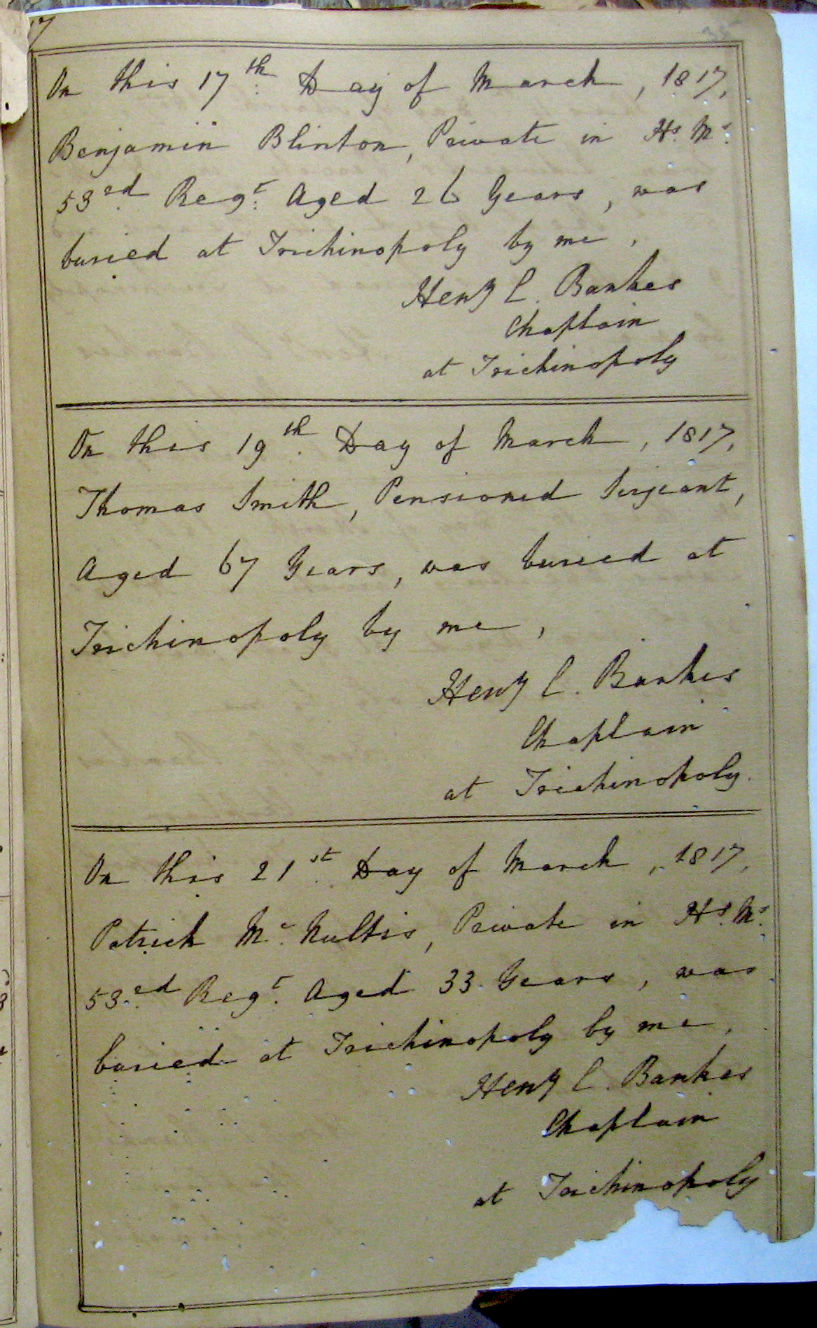 On this 17th Day of March, 1817,
Benjamin Blinton, Private in Hs. Ms.
53ed Regt. Aged 26 Years, was
buried at Trichinopoly by me,
Heny C. Bankes
Chaplain
at Trichinopoly
On this 19th Day of March, 1817,
Thomas Smith, Pensioned Serjeant,
Aged 67 Years, was buried at
Trichinopoly by me,
Heny C. Bankes
Chaplain
at Trichinopoly.
On this 21st Day of March, 1817,
Patrick Mc. Nultis, Private in Hs. Ms.
53ed Regt. Aged 33 Years, was
buried at Trichinopoly by me,
Heny C. Bankes
Chaplain
at Trichinopoly